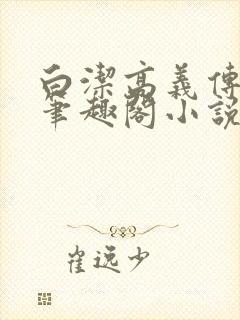 白潔高義傳
筆趣閣小說
崔逸少